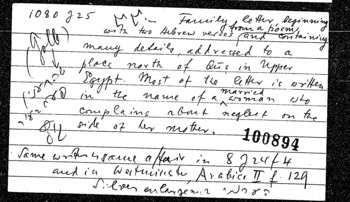 1080 J 25 Family letter, beginning
from a poem,
with two Hebrew verses and containing
many details, addressed to a
place north of Qus in Upper
Egypt. Most of the letter is written
married
in the name of a woman who
complains about neglect on the
side of her mother.
100894
Same writer & same affair in 8 J 24 f 4
and in Westminster, Arabica II f. 129